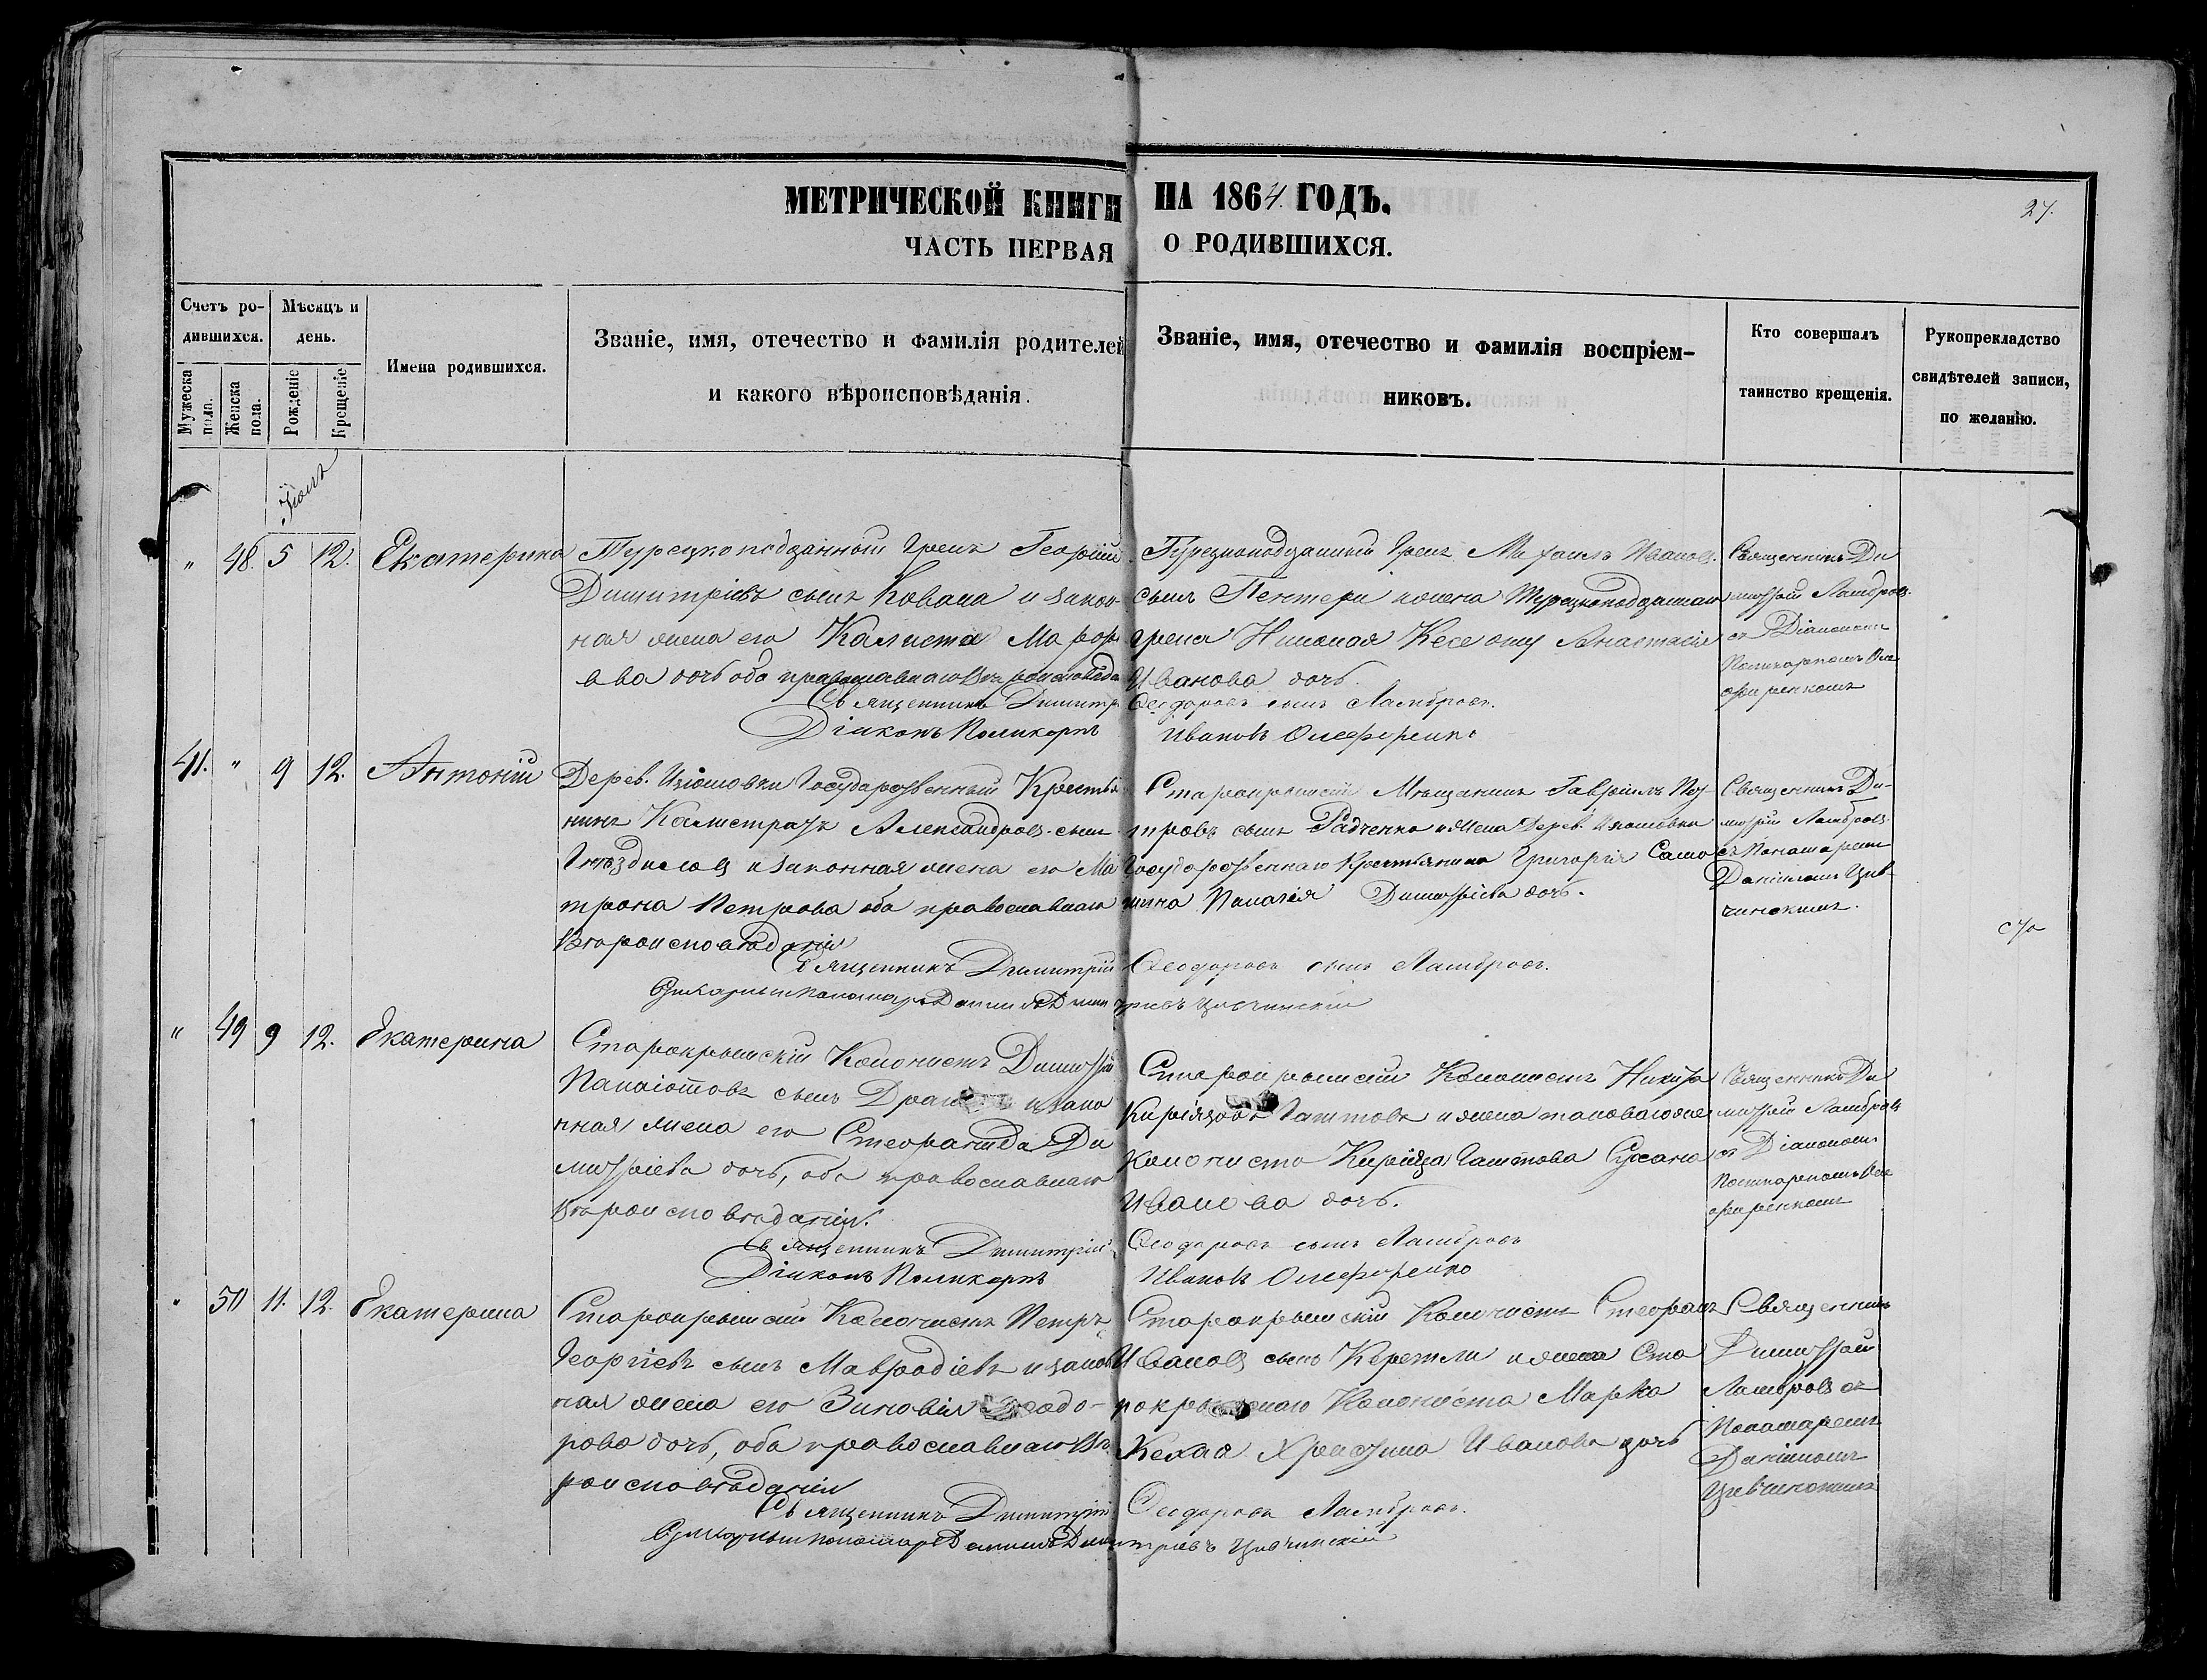 МЕТРИЧЕСКОЙ КНИГИ НА 1864. ГОДЪ.
27.
ЧАСТЬ ПЕРВАЯ О РОДИВШИХСЯ.
Счетъ ро-
дившихся.
Мужеска
пола.
Женска
пола.
Мѣсяцъ и
день.
Рожденіе
Крещеніе
Имена родившихся.
Званіе, имя, отечество и фамилія родителей
и какого вѣроисповѣданія.
Званіе, имя, отечество и фамилія воспріем-
никовъ.
Кто совершалъ
таинство крещенія.
Рукоприкладство
свидѣтелей записи,
по желанію.
" 48. 5 12. Екатерина
Турецкоподданный Грекъ Георгій
Димитріевъ сынъ Ковала и закон-
ная жена его Калиста
ева дочь оба православнаго
Священникъ Димитрій
Діаконъ Поликарпъ
Турецкоподданный Грекъ Михаилъ Иванов.
сынъ Пентери и жена Турецкоподданаго
грека Николая Анастасія
Иванова дочь.
Ѳеодоровъ сынъ Ламбровъ.
Ивановъ Олеференко
Священникъ Ди
митрій Ламбровъ
съ Діакономъ
Поликарпомъ Оле
ференкомъ
41. " 9 12. Антоній
Дерев. Изюмовки Государственный Крестья
нинъ Калистратъ Александров. сынъ
Гнѣздиловъ и законная жена его Ма
трона Петрова оба православнаго
Вѣроисповѣданія
Священникъ Димитрій
Пономарь Даніилъ Дими
Старокрымскій Мѣщанинъ Гавріилъ Пет
ровъ сынъ Радченко и жена Дерев. Изюмовки
Государственнаго Крестьянина Григорія Само
Палагія Димитріева дочь.
Ѳеодоровъ сынъ Ламбровъ.
тріевъ Цивчинскій
Священникъ Ди-
митрій Ламбровъ
съ Понамаремъ
Даніиломъ Цив-
чинскимъ.
" 49 9 12. Екатерина
Старокрымскій Колонистъ Димитрій
Панаіотовъ сынъ и закон
нная жена его Стефанида Ди
митріева дочь, оба православнаго
Вѣроисповѣданія.
Священникъ Димитрій
Діаконъ Поликарпъ
Старокрымскій Колонистъ Никита
Киріяковъ и жена таковаго же
колониста Киріяка Сусана
Иванова дочь.
Ѳеодоровъ сынъ Ламбровъ
Ивановъ Олеференко
Священникъ Ди
митрій Ламбровъ
съ Діакономъ
Поликарпомъ Оле
ференкомъ
" 50 11. 12. Екатерина
Старокрымскій Колонистъ Петръ
Георгіевъ сынъ Мавродіевъ и закон
ная жена его Зиновія Ѳеодо-
рова дочь, оба православнаго Вѣ
роисповѣданія
Священникъ Димитрій
Пономарь Даніилъ Дими
Старокрымскій Колонистъ Стефанъ
Ивановъ сынъ и жена Ста
рокрымскаго Колониста Марка
Кехая Христина Иванова дочь
Ѳеодоровъ Ламбровъ.
тріевъ Цивчинскій
Священникъ
Димитрій
Ламбровъ съ
Понамаремъ
Даніиломъ
Цивчинскимъ